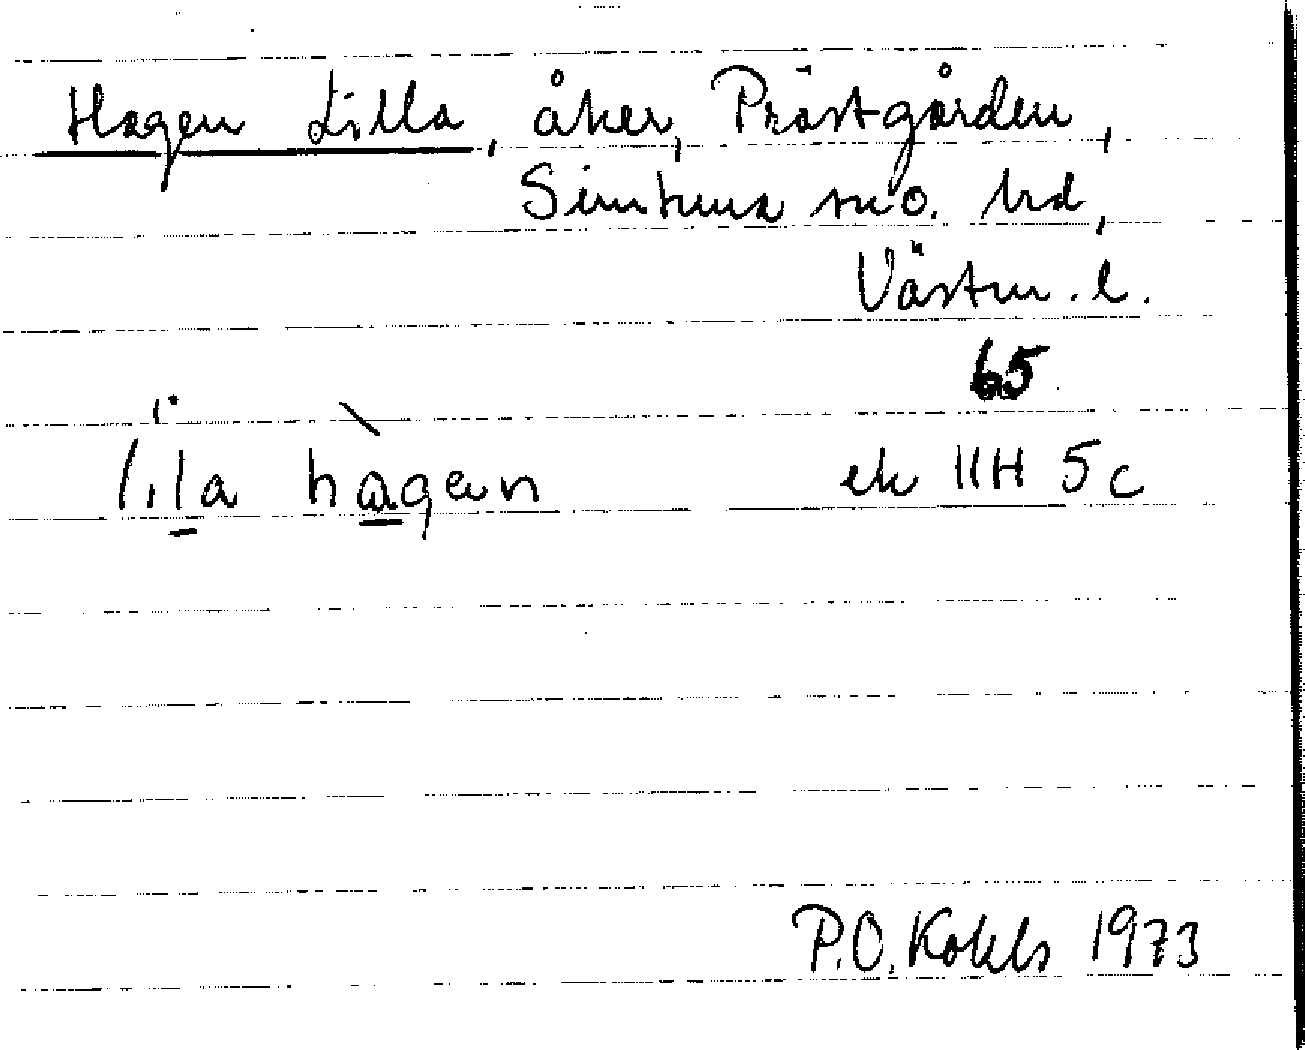 Hagen Lilla, åker, Prästgården,
Simtuna sn o. hd,
Västm. l.
65
lila hagen
ek 11H 5c
P.O. Kohls 1973